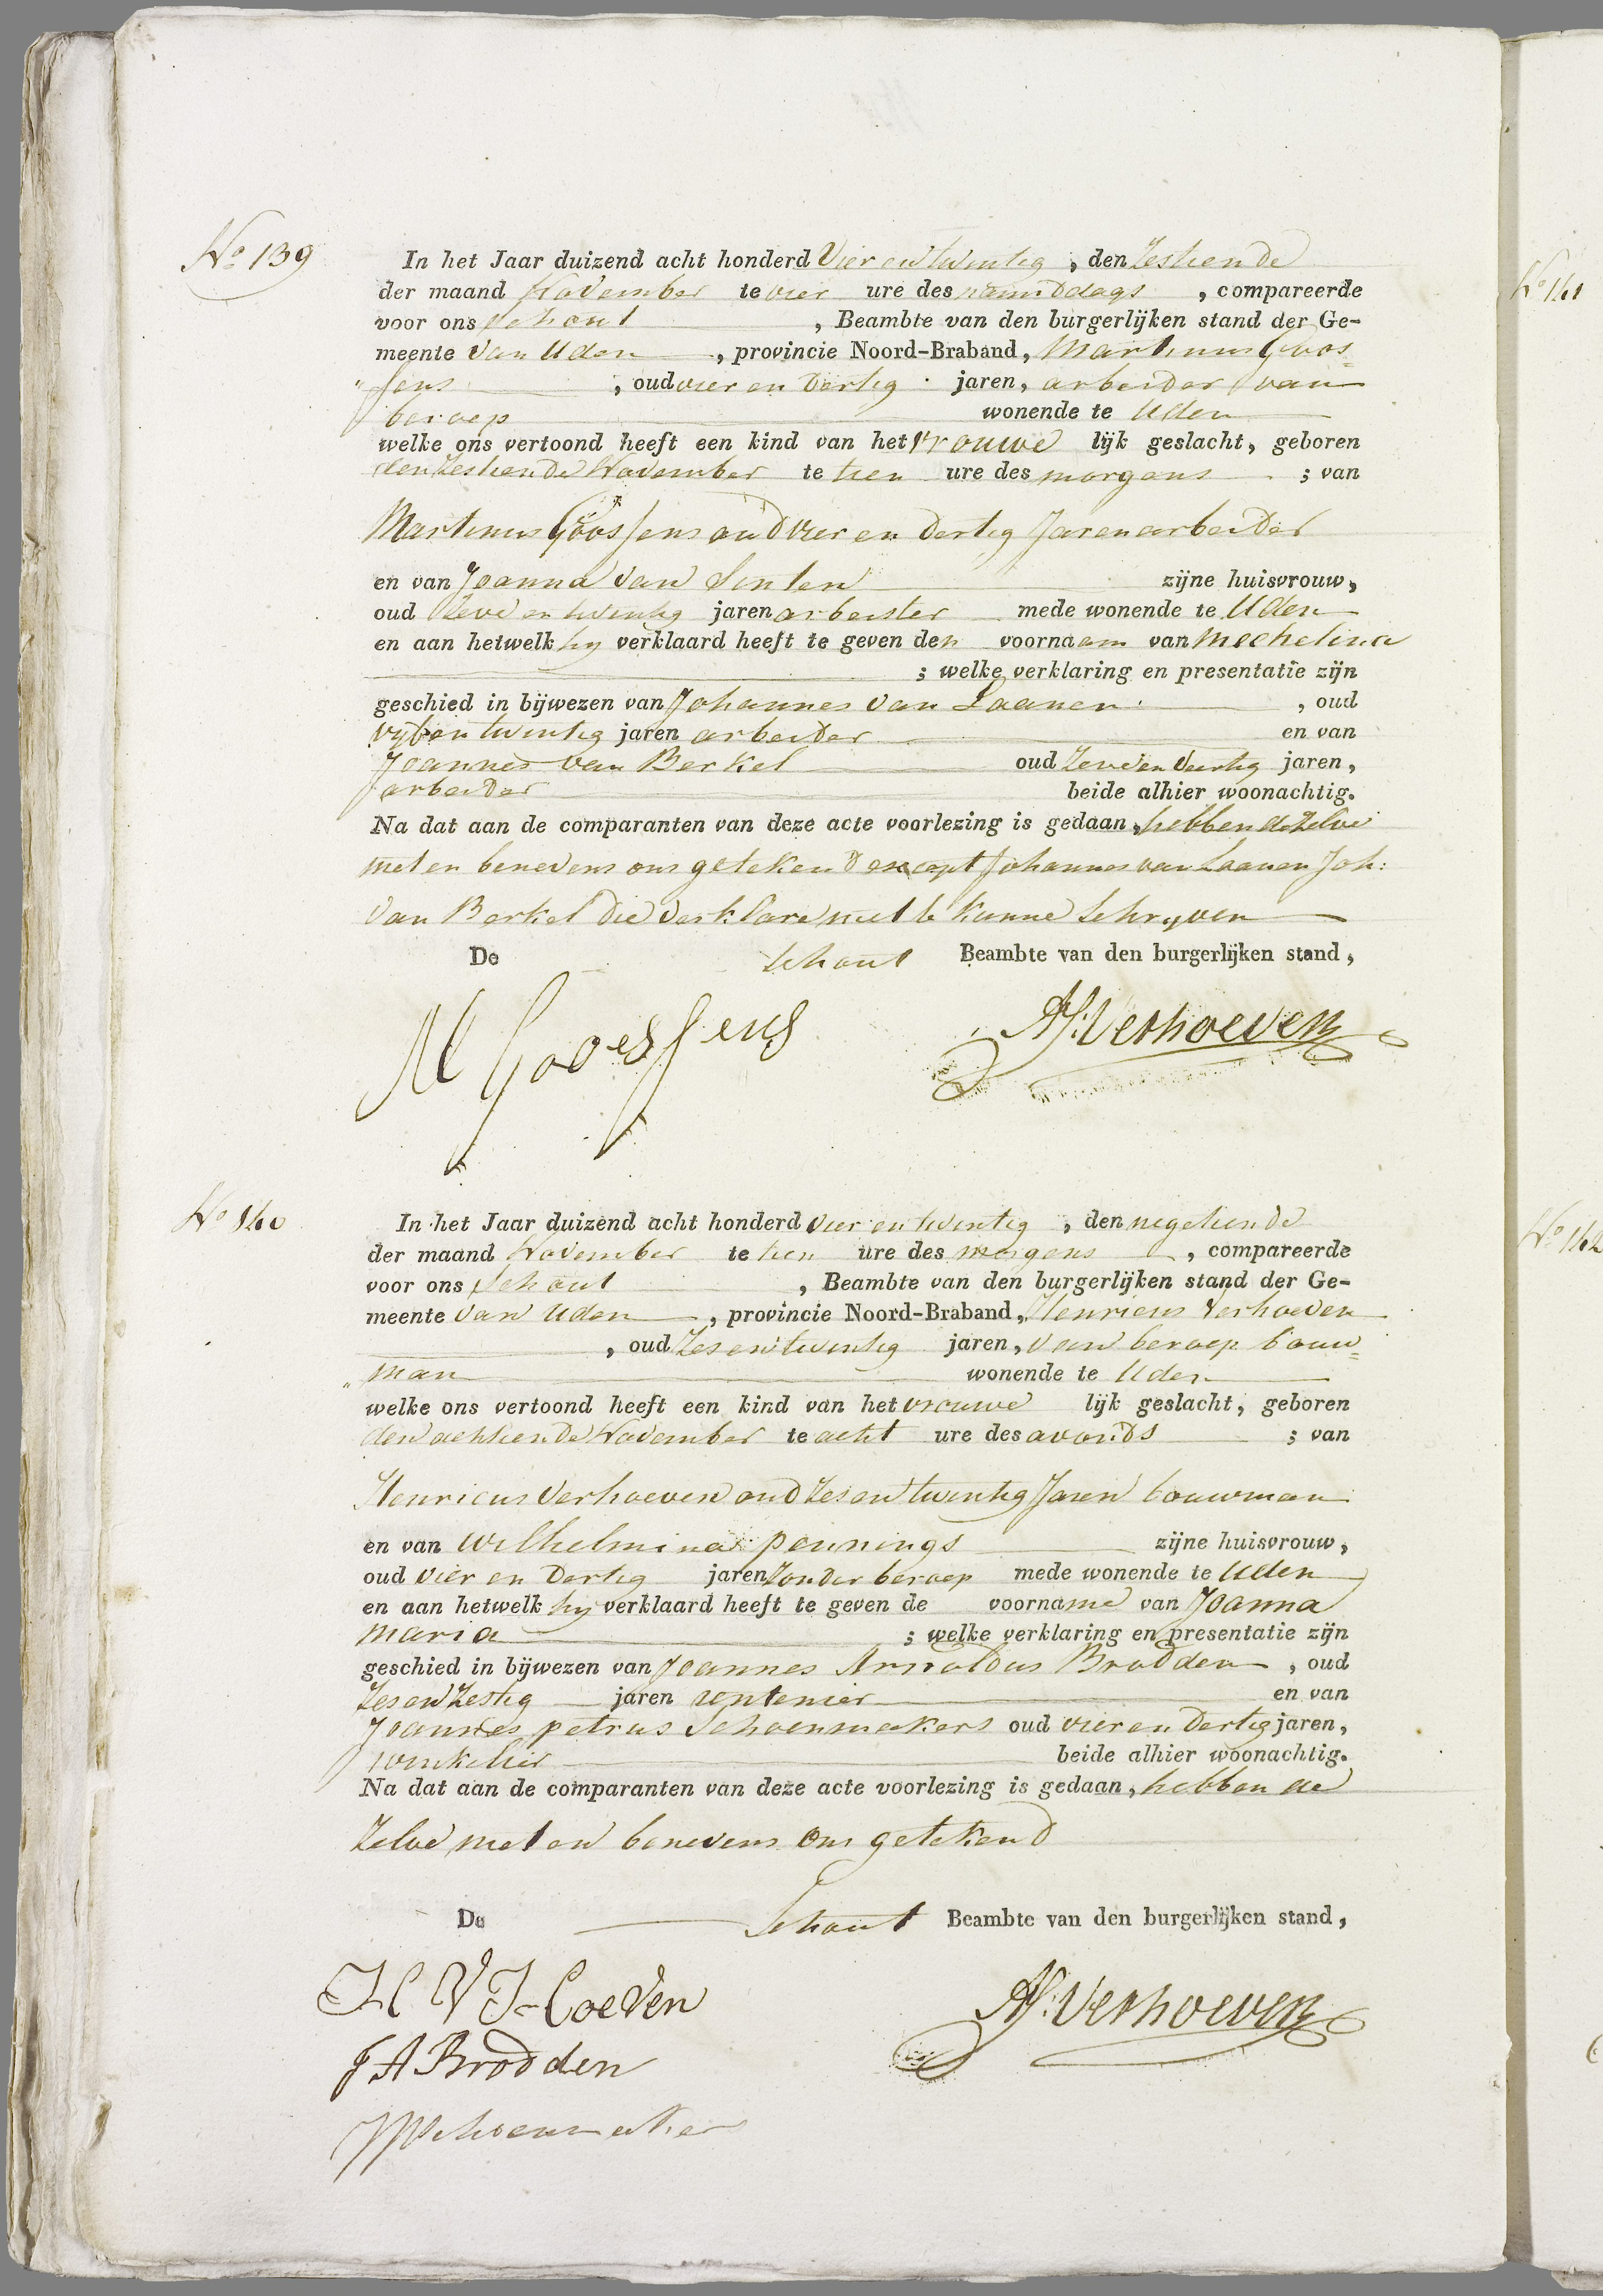 No 139
In het Jaar duizend acht honderd Vier en twintig, den Zestiende
der maand November te vier ure des namiddags, compareerde
voor ons Schout, Beambte van den burgerlijken stand der Ge-
meente van Uden, provincie Noord-Braband, Martinus Goos=
"sens, oud vier en dertig jaren, arbeider van
beroep wonende te Uden
welke ons vertoond heeft een kind van het vrouwe lijk geslacht, geboren
den Zestiende November te tien ure des morgens; van
Martinus Goossens oud vier en dertig Jaren arbeider
en van Joanna van Sinten zijne huisvrouw,
oud Zeve en twintig jaren arbeister mede wonende te Uden
en aan hetwelk hy verklaard heeft te geven den voornaam van Mechelina
; welke verklaring en presentatie zijn
geschied in bijwezen van Johannes van Laanen, oud
vyf en twintig jaren arbeider en van
Joannes van Berkel oud Zeven en veertig jaren,
arbeider beide alhier woonachtig.
Na dat aan de comparanten van deze acte voorlezing is gedaan, hebben de Zelve
met en benevens ons getekend except Johannes van Laanen Joh:
van Berkel die verklare niet te kunne schryven
De Schout Beambte van den burgerlijken stand,
M Gooessens
Verhoeven
No 140
In het Jaar duizend acht honderd vier en twintig, den negetiende
der maand November te tien ure des morgens, compareerde
voor ons Schout, Beambte van den burgerlijken stand der Ge-
meente van Uden, provincie Noord-Braband, Henricus Verhoeven
, oud Zes en twintig jaren, van beroep bouw=
"man wonende te Uden
welke ons vertoond heeft een kind van het vrouwe lijk geslacht, geboren
den achtiende November te acht ure des avonds; van
Henricus Verhoeven oud Zes en twintig Jaren bouwman
en van Wilhelmina pennings zijne huisvrouw,
oud vier en dertig jaren Zonder beroep mede wonende te Uden
en aan hetwelk hy verklaard heeft te geven de voorname van Joanna
Maria; welke verklaring en presentatie zijn
geschied in bijwezen van Joannes Arnoldus Brodden, oud
Zes en Zestig jaren rentenier en van
Joannes petrus Schoenmakers oud vier en dertig jaren,
winkelier beide alhier woonachtig.
Na dat aan de comparanten van deze acte voorlezing is gedaan, hebben de
Zelve met en benevens ons getekend
De Schout Beambte van den burgerlijken stand,
H V Hoeven
Verhoeven
J A Brodden
JPSchoenmaker
No 141
No 142